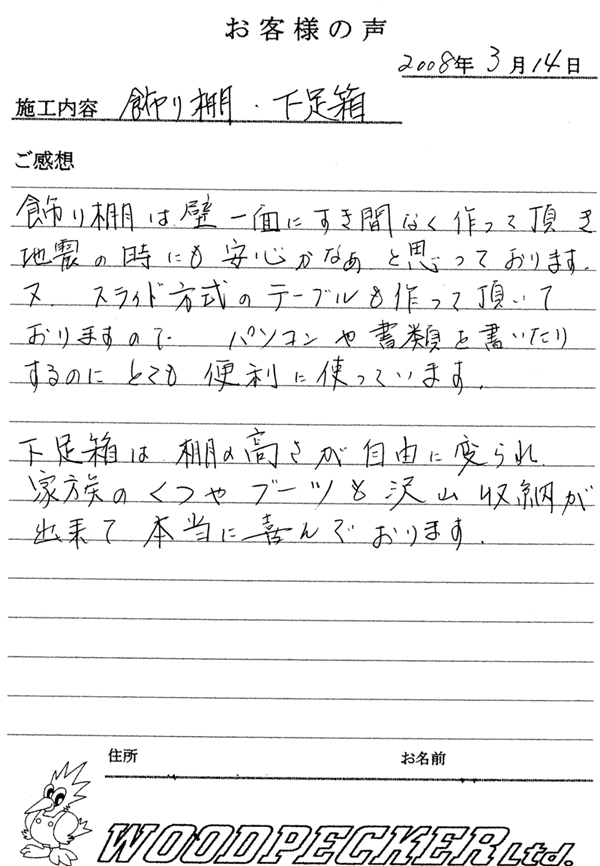 お客様の声
2008年 3月14日
施工内容 飾り棚・下足箱
ご感想
飾り棚は壁一面にすき間なく作って頂き
地震の時にも安心かなぁと思っております。
又、スライド方式のテーブルも作って頂いて
おりますので パソコンや書類を書いたり
するのにとても便利に使っています。
下足箱は棚の高さが自由に変られ
家族のくつやブーツも沢山収納が
出来て本当に喜んでおります。
住所 お名前
WOODPECKER Ltd.